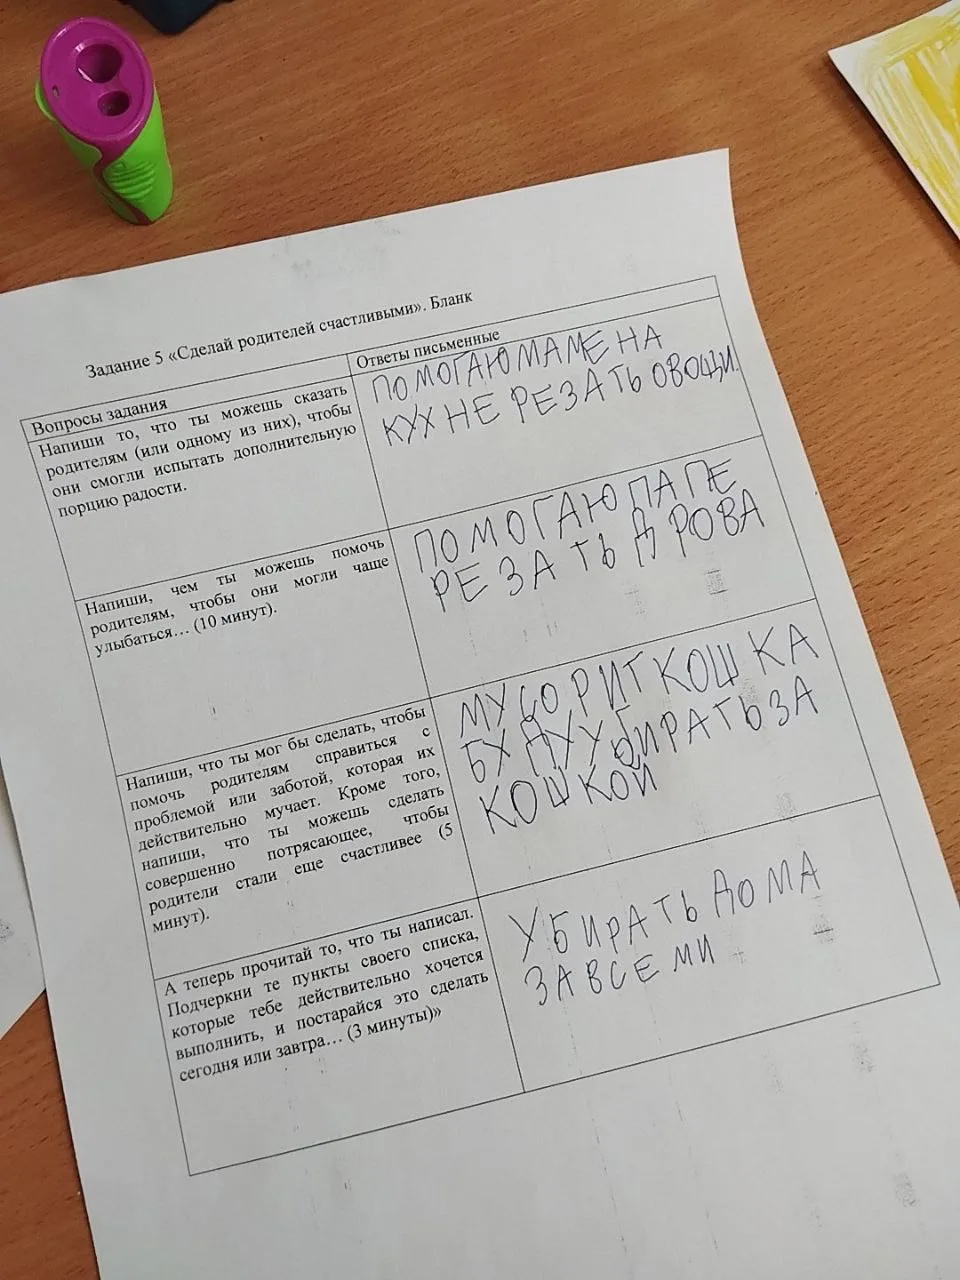 Задание 5 «Сделай родителей счастливыми». Бланк
Вопросы задания
Ответы письменные
Напиши то, что ты можешь сказать
родителям (или одному из них), чтобы
они смогли испытать дополнительную
порцию радости.
ПОМОГАЮ МАМЕ НА
КУХНЕ РЕЗАТЬ ОВОЩИ.
Напиши, чем ты можешь помочь
родителям, чтобы они могли чаще
улыбаться… (10 минут).
ПОМОГАЮ ПАПЕ
РЕЗАТЬ ДРОВА
Напиши, что ты мог бы сделать, чтобы
помочь родителям справиться с
проблемой или заботой, которая их
действительно мучает. Кроме того,
напиши, что ты можешь сделать
совершенно потрясающее, чтобы
родители стали еще счастливее (5
минут).
МУСОРИТ КОШКА
БУДУ УБИРАТЬ ЗА
КОШКОЙ
А теперь прочитай то, что ты написал.
Подчеркни те пункты своего списка,
которые тебе действительно хочется
выполнить, и постарайся это сделать
сегодня или завтра… (3 минуты)»
УБИРАТЬ ДОМА
ЗА ВСЕМИ